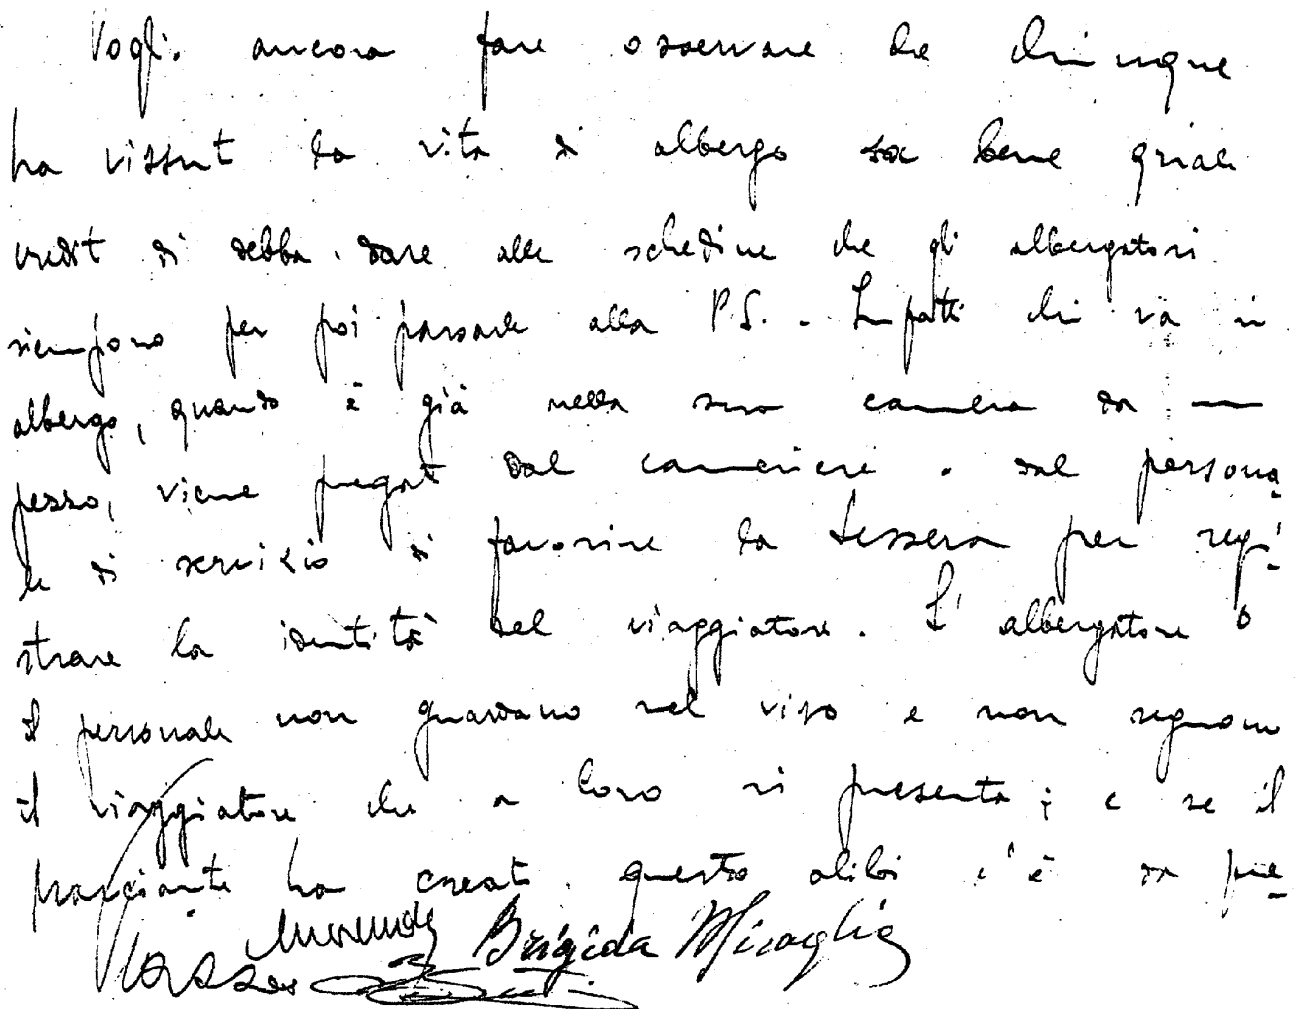 Voglio ancora fare osservare che chiunque
ha vissuto la vita di albergo sa bene quale
credito si debba dare alle schedine che gli albergatori
riempono per poi passare alla P.S. - Infatti chi va in
albergo, quando è già nella sua camera da —
pezzo, viene pregato dal cameriere o dal persona-
le di servizio di favorire la tessera per regi-
strare la identità del viaggiatore. L'albergatore o
il personale non guardano nel viso e non segnano
il viaggiatore che a loro si presenta; e se il
ha creato questo alibi c'è da pre-
Brigida Miraglia